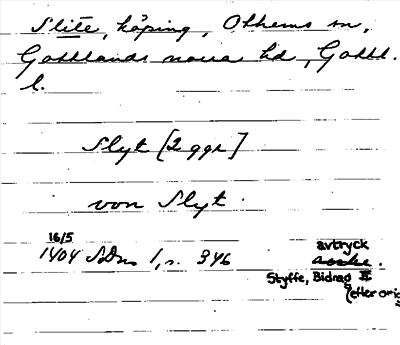 Slite, köping, Othems sn,
Gotlands norra hd, Gottl.
l.
Slyt [2 ggr]
von Slyt.
16/5
1404 SDns 1, s. 346
avtryck
Styffe, Bidrag II
(efter orig